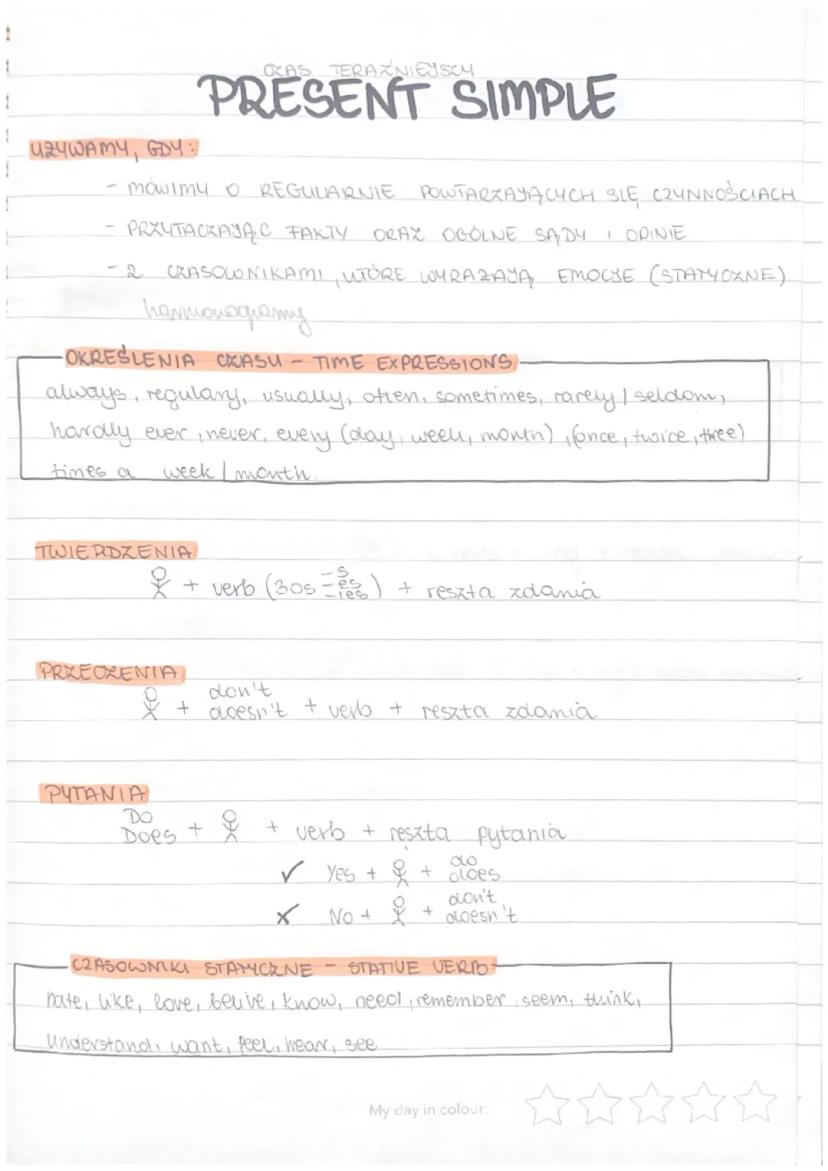 CZAS TERAŹNIEJSZY
PRESENT SIMPLE
UŻYWAMY, GDY:
- MÓWIMY O REGULARNIE POWTARZAJĄCYCH SIĘ CZYNNOŚCIACH
- PRZYTACZAJĄC FAKTY ORAZ OGÓLNE SĄDY I OPINIE
- Z CZASOWNIKAMI, KTÓRE WYRAŻAJĄ EMOCJE (STATYCZNE)
harmonogramy
OKREŚLENIA CZASU - TIME EXPRESSIONS
always, regulary, usually, often, sometimes, rarely / seldom,
hardly ever, never, every (day, week, month), (once, twice, three)
times a week / month.
TWIERDZENIA
+ verb (3os -s -es -ies) + reszta zdania
PRZECZENIA
don't
+ doesn't + verb + reszta zdania
PYTANIA
DO
Does + + verb + reszta pytania
do
✓ Yes + + does
don't
x No + + doesn't
CZASOWNIKI STATYCZNE - STATIVE VERB
hate, like, love, belive, know, need, remember, seem, think,
understand, want, feel, hear, see
My day in colour: